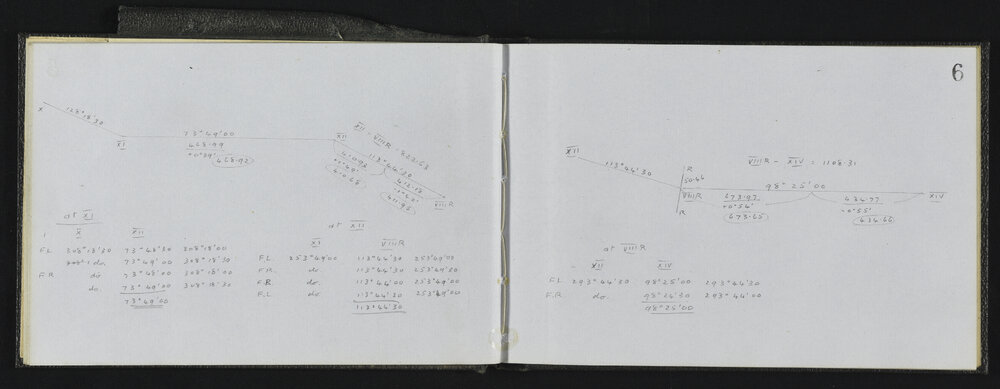 X
128°18'30
XI
73°49'00
468.99
+0°59'
468.92
XII
XII - VIIIR = 823.63
113°44'30
VIIIR
411.95
at XI
X XII
F.L 308°18'30 73°48'30 308°18'00
do. 73°49'00 308°18'30
F.R do 73°48'00 308°18'00
do. 73°49'00 308°18'30
73°49'00
at XII
XI VIIIR
F.L. 253°49'00 113°44'30 253°49'00
F.R. do. 113°44'30 253°49'00
F.R. do. 113°44'00 253°49'00
F.L do 113°44'30 253°49'00
113°44'30
6
XII
113°44'30
R
50.44
VIIIR
R
VIIIR - XIV = 1108.31
98°25'00
673.97
+0°54'
673.65
434.77
+0°55'
434.66
XIV
at VIIIR
XII XIV
F.L 293°44'30 98°25'00 293°44'30
F.R do. 98°24'30 293°44'00
98°25'00